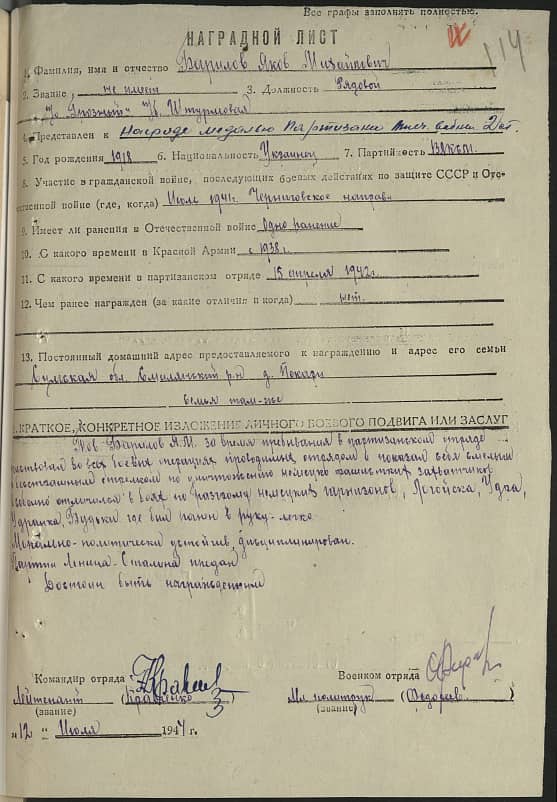 Все графы заполнять полностью.
114
НАГРАДНОЙ ЛИСТ
1. Фамилия, имя и отчество Барилов Яков Михайлович
2. Звание, не имеет 3. Должность Рядовой
"За Грозный" Штурмовая
4. Представлен к Награде медалью Партизана Отеч. войны 2 ст.
5. Год рождения 1918 6. Национальность Украинец 7. Партийность ВЛКСМ
8. Участие в гражданской войне, последующих боевых действиях по защите СССР и Оте-
чественной войне (где, когда) Июль 1941г. Черниговское направ.
9. Имеет ли ранения в Отечественной войне Одно ранение
10. С какого времени в Красной Армии с 1938 г.
11. С какого времени в партизанском отряде 15 апреля 1942г.
12. Чем ранее награжден (за какие отличия и когда) нет.
13. Постоянный домашний адрес предоставляемого к награждению и адрес его семьи
Сумская обл. р-н д.
семья там-же
КРАТКОЕ, КОНКРЕТНОЕ ИЗЛОЖЕНИЕ ЛИЧНОГО БОЕВОГО ПОДВИГА ИЛИ ЗАСЛУГ
Тов. Барилов Я.М. за время пребывания в партизанском отряде
участвовал во всех боевых операциях проводимых отрядом и показал себя смелым
и бесстрашным стрелком по уничтожению немецко фашистских захватчиков
особенно отличился в боях по разгрому немецких гарнизонов, Логойска,
где был ранен в руку-легко
Морально-политически устойчив, дисциплинирован.
Партии Ленина-Сталина предан
Достоин быть награжденным
Командир отряда Военком отряда
Лейтенант (Кравченко) Мл политрук (Федореев)
(звание) (звание)
"12" Июля 1944 г.